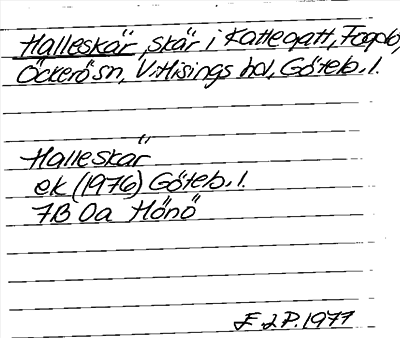 Halleskär, skär i Kattegatt, Fogolö,
Öckerö sn, V:Hisings hd, Göteb. l.
Halleskär
ek (1976) Göteb. l.
7B 0a Hönö
1977